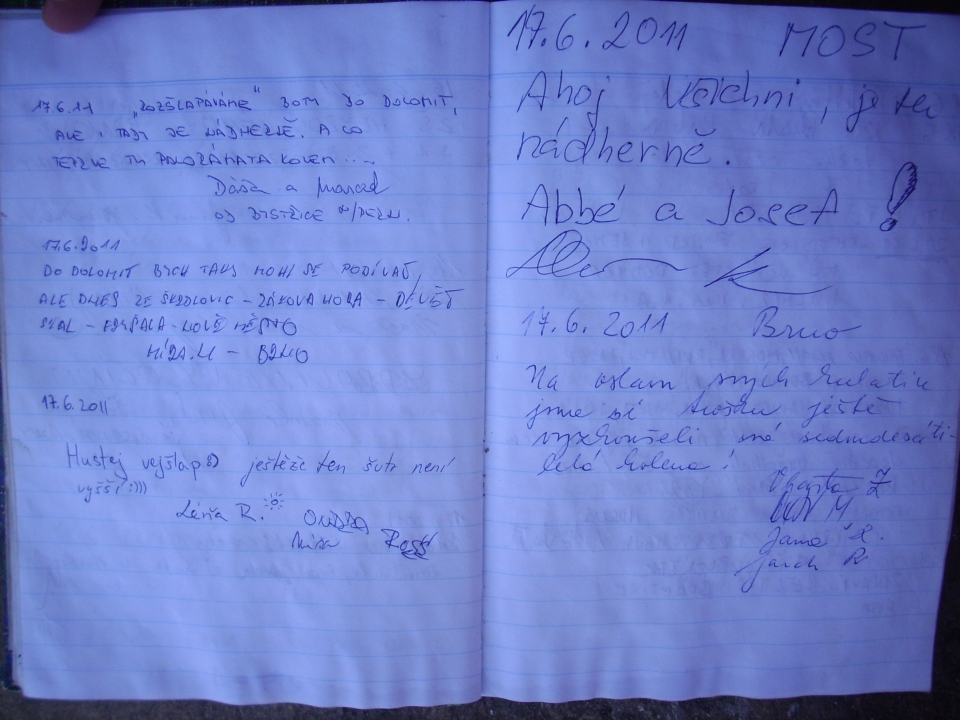 17.6.11 „ROZŠLAPÁVÁME" BOTY DO DOLOMIT,
ALE I TADY JE NÁDHERNĚ. A CO
TEPRVE TA PANORÁMATA KOLEM ....
Dáša a
OD BYSTŘICE N/PERN.
17.6.2011
DO DOLOMIT BYCH TAKY MOHL SE PODÍVAT,
ALE DNES ZE ŠKRDLOVIC – ŽÁKOVA HORA – DEVĚT
SKAL – – NOVÉ MĚSTO
– BRNO
17.6.2011
Hustej vejšlap ještěže ten šutr není
vyšší :)))
R.
17.6.2011 MOST
Ahoj Všichni, je tu
nádherně.
Abbé a Josef !
17.6.2011 Brno
Na oslavu svých kulatin
jsme si trošku ještě
vyzkoušeli sedmdesáti-
letá kolena!